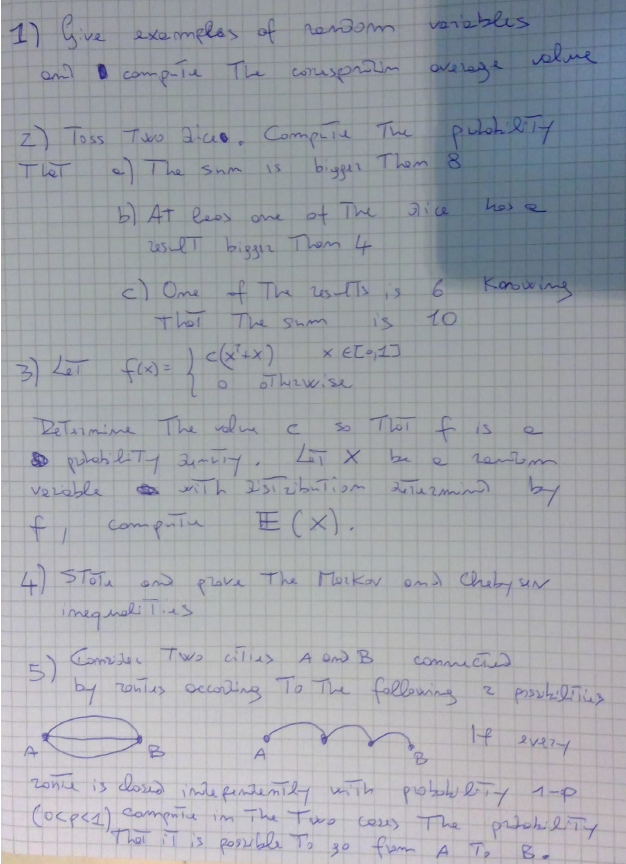 1) Give examples of random variables
and compute the correspondin average value
2) Toss Two dice. Compute The probability
That a) The sum is bigger Than 8
b) At leas one of The dice has a
result bigger Than 4
c) One of The results is 6 Knowing
that The sum is 10
3) Let f(x) = { c(x²+x) x ∈ [0,1]
0 otherwise
Determine The value c so That f is a
probability density. Let X be a random
variable with distribution determined by
f, compute 𝔼(X).
4) State and prove The Markov and Chebyshev
inequalities
5) Consider Two cities A and B connected
by routes according To The following 2 possibilities
A B A B If every
route is closed independently with probability 1-p
(0<p<1) compute in The Two cases The probability
That it is possible To go from A To B.